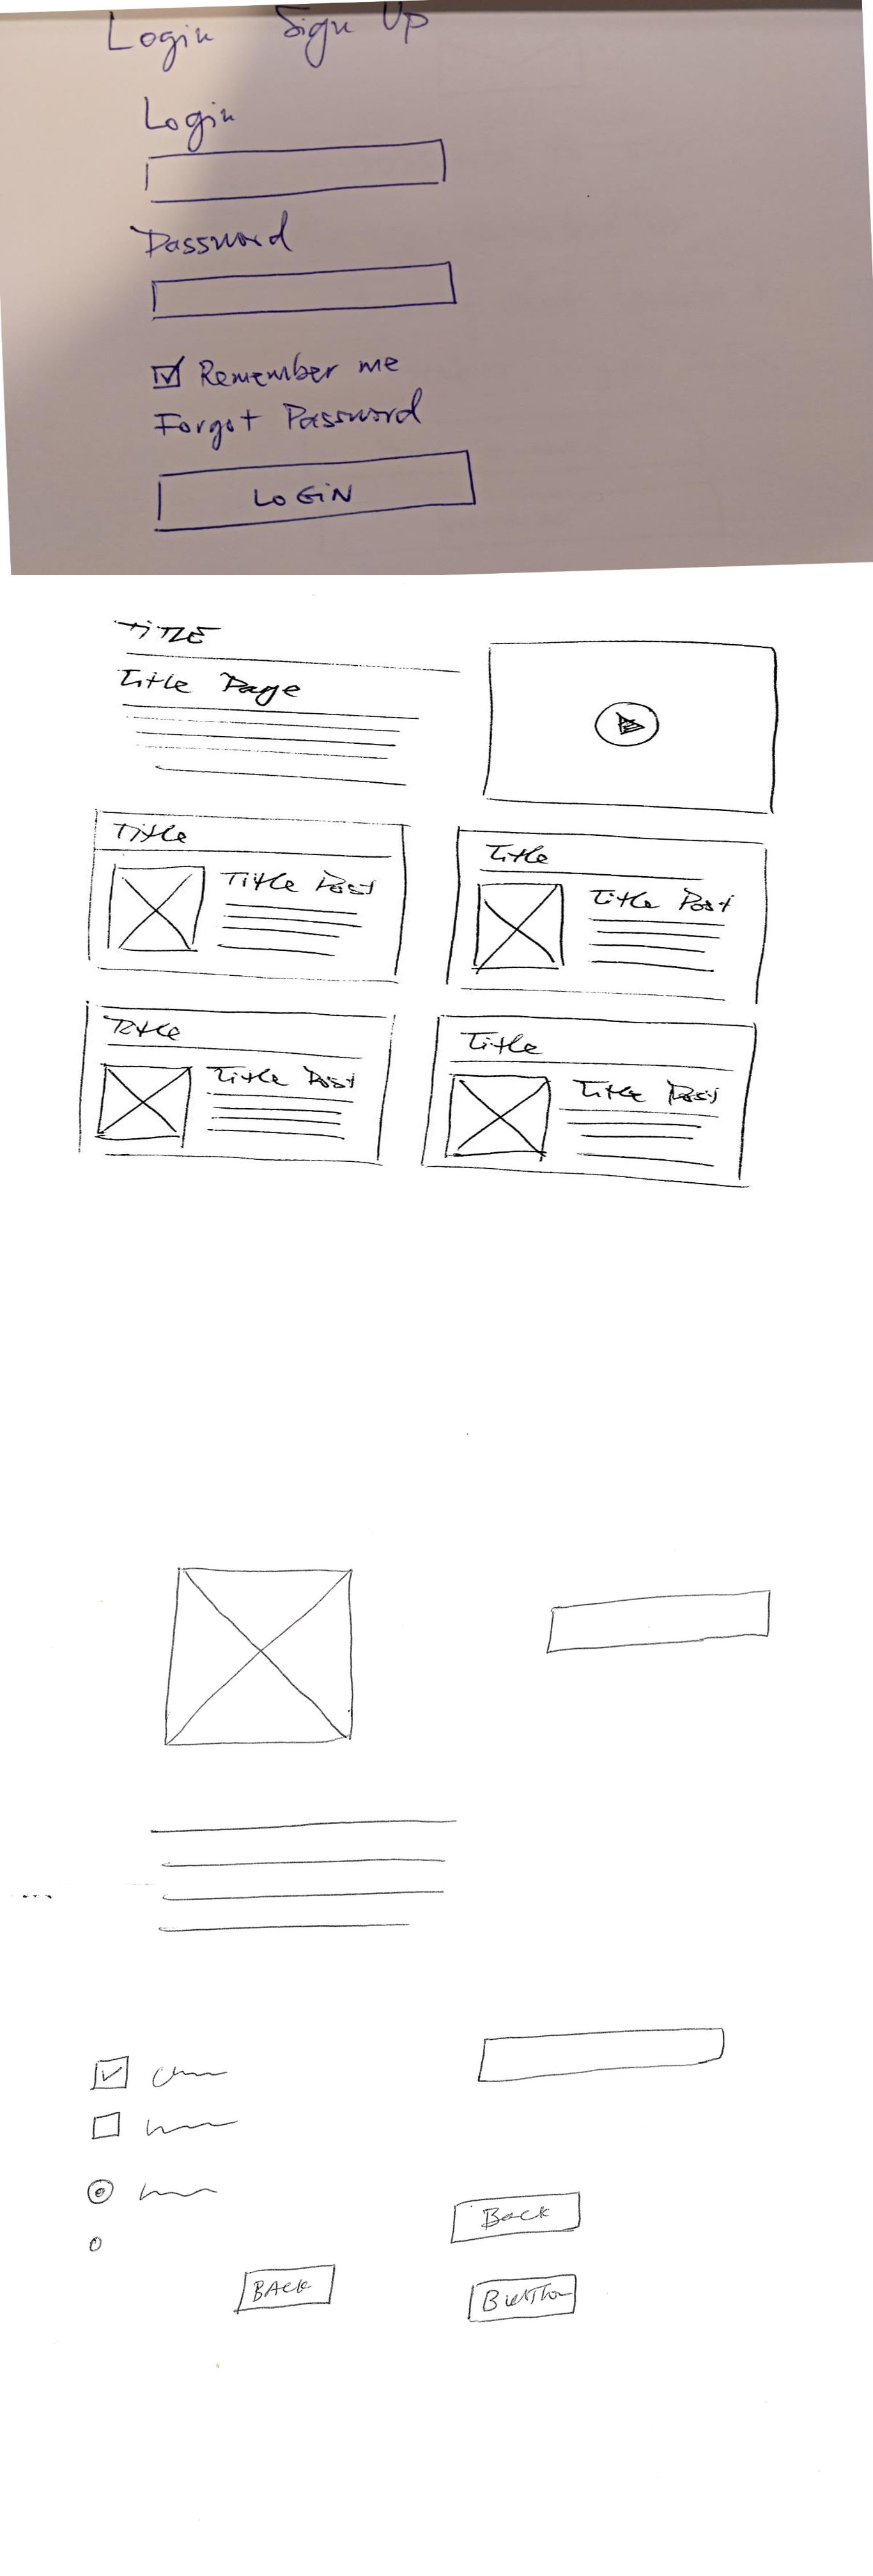 Login Sign Up
Login
Password
Remember me
Forgot Password
LOGIN
TITLE
Title Page
Title
Title Post
Title
Title Post
Title
Title Post
Title
Title Post
Back
BACK
Button